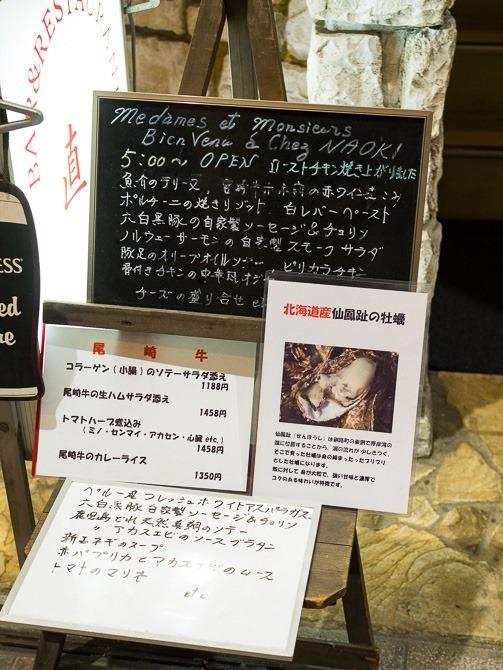 BAR & RESTAURANT
直
Medames et Monsieurs
BienVenu à Chez NAOKI
5:00〜 OPEN ローストチキン焼き上がりました
魚介のテリーヌ の赤ワイン煮こみ
ポルチーニの焼きリゾット 白レバーペースト
六白黒豚の自家製ソーセージ&チョリソ
ノルウェーサーモンの自家製スモークサラダ
豚足のオリーブオイルソテー ピリカラチキン
骨付きチキンの中華風
チーズの盛り合せ
ESS®
尾崎牛
コラーゲン(小腸)のソテーサラダ添え
1188円
尾崎牛の生ハムサラダ添え
1458円
トマトハーブ煮込み
(ミノ・センマイ・アカセン・心臓 etc.)
1458円
尾崎牛のカレーライス
1350円
北海道産仙鳳趾の牡蠣
仙鳳趾(せんぽうし)は釧路町の東側で厚岸湾の
端に位置することから、潮の流れが少しきつく、
そこで育った牡蠣は身の締まったプリプリ
とした牡蠣になります。
殻に対して身が大粒で、強い甘味と濃厚で
コクのある味わいが特徴です。
ペルー産フレッシュホワイトアスパラガス
六白黒豚自家製ソーセージ&チョリソ
鹿児島どれ天然真鯛のソテー
アカスエビのソースブラタン
新玉ネギのスープ
赤パプリカとアカスエビのムース
トマトのマリネ
etc